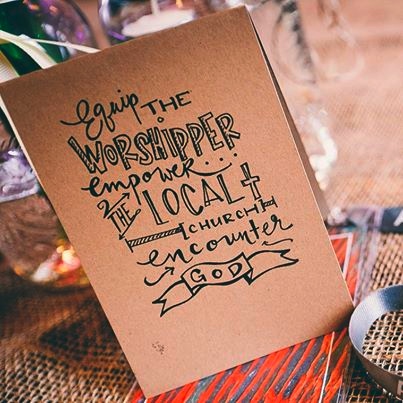 Equip THE
WORSHIPPER
empower...
THE LOCAL
CHURCH
encounter
GOD